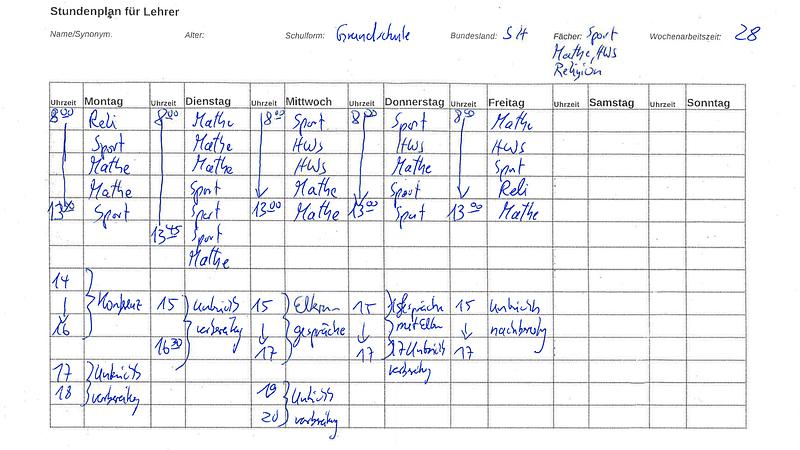 Stundenplan für Lehrer
Name/Synonym: Alter: Schulform: Grundschule Bundesland: SH Fächer: Sport Wochenarbeitszeit: 28
Mathe, HWS
Religion
Uhrzeit Montag Uhrzeit Dienstag Uhrzeit Mittwoch Uhrzeit Donnerstag Uhrzeit Freitag Uhrzeit Samstag Uhrzeit Sonntag
8 00 Reli 8 00 Mathe 8 00 Sport 8 00 Sport 8 00 Mathe
Sport Mathe HWS HWS HWS
Mathe Mathe HWS Mathe Sport
Mathe Sport Mathe Sport Reli
13 00 Sport Sport 13 00 Mathe 13 00 Sport 13 00 Mathe
13 45 Sport
Mathe
14
Konferenz 15 Unterrichts 15 Eltern 15 Gespräche 15 Unterrichts
16 vorbereitung gespräche mit Eltern nachbereitung
16 30 17 17 17 Unterrichts 17
17 Unterrichts vorbereitung
18 vorbereitung 19 Unterrichts
20 vorbereitung